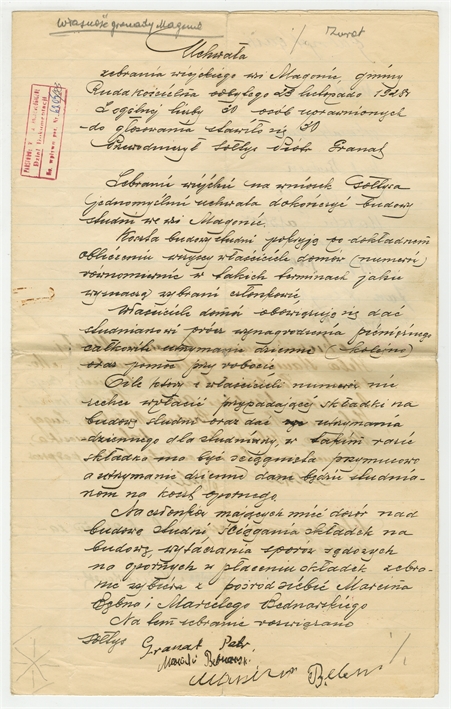 Własność gromady Magonie
Uchwała
zebrania wiejskiego wsi Magonie, gminy
Ruda Kościelna odbytego listopada
Z ogólnej liczby 30 osób uprawnionych
do głosowania stawiło się 30
Przewodniczył sołtys Piotr Granat
Zebranie wiejskie na wniosek sołtysa
jednomyślnie uchwala dokończyć budowę
studni we wsi Magonie.
Koszta budowy studni pokryją po dokładnem
obliczeniu wszyscy właściciele domów (numerów)
równomiernie w takich terminach jakie
wyznaczą wybrani członkowie
Właściciele domów obowiązują się dać
studniarzowi prócz wynagrodzenia pieniężnego
całkowite utrzymanie dzienne (kolejno)
oraz pomoc przy robocie
O ile któryś z właścicieli numeru nie
zechce wpłacić przypadającej składki na
budowę studni oraz dać utrzymania
dziennego dla studniarzy, w takim razie
składka ma być ściągnięta przymusowo
a utrzymanie dzienne dane będzie studnia-
rzom na koszt opornego.
Na członków mających mieć dozór nad
budową studni ściągania składek na
budowę, wytaczania sporów sądowych
na opornych w płaceniu składek zebra-
nie wybiera z pośród siebie Marcina
i Marcelego Bednarskiego
Na tem zebranie rozwiązano
sołtys Granat Piotr
Bednarski